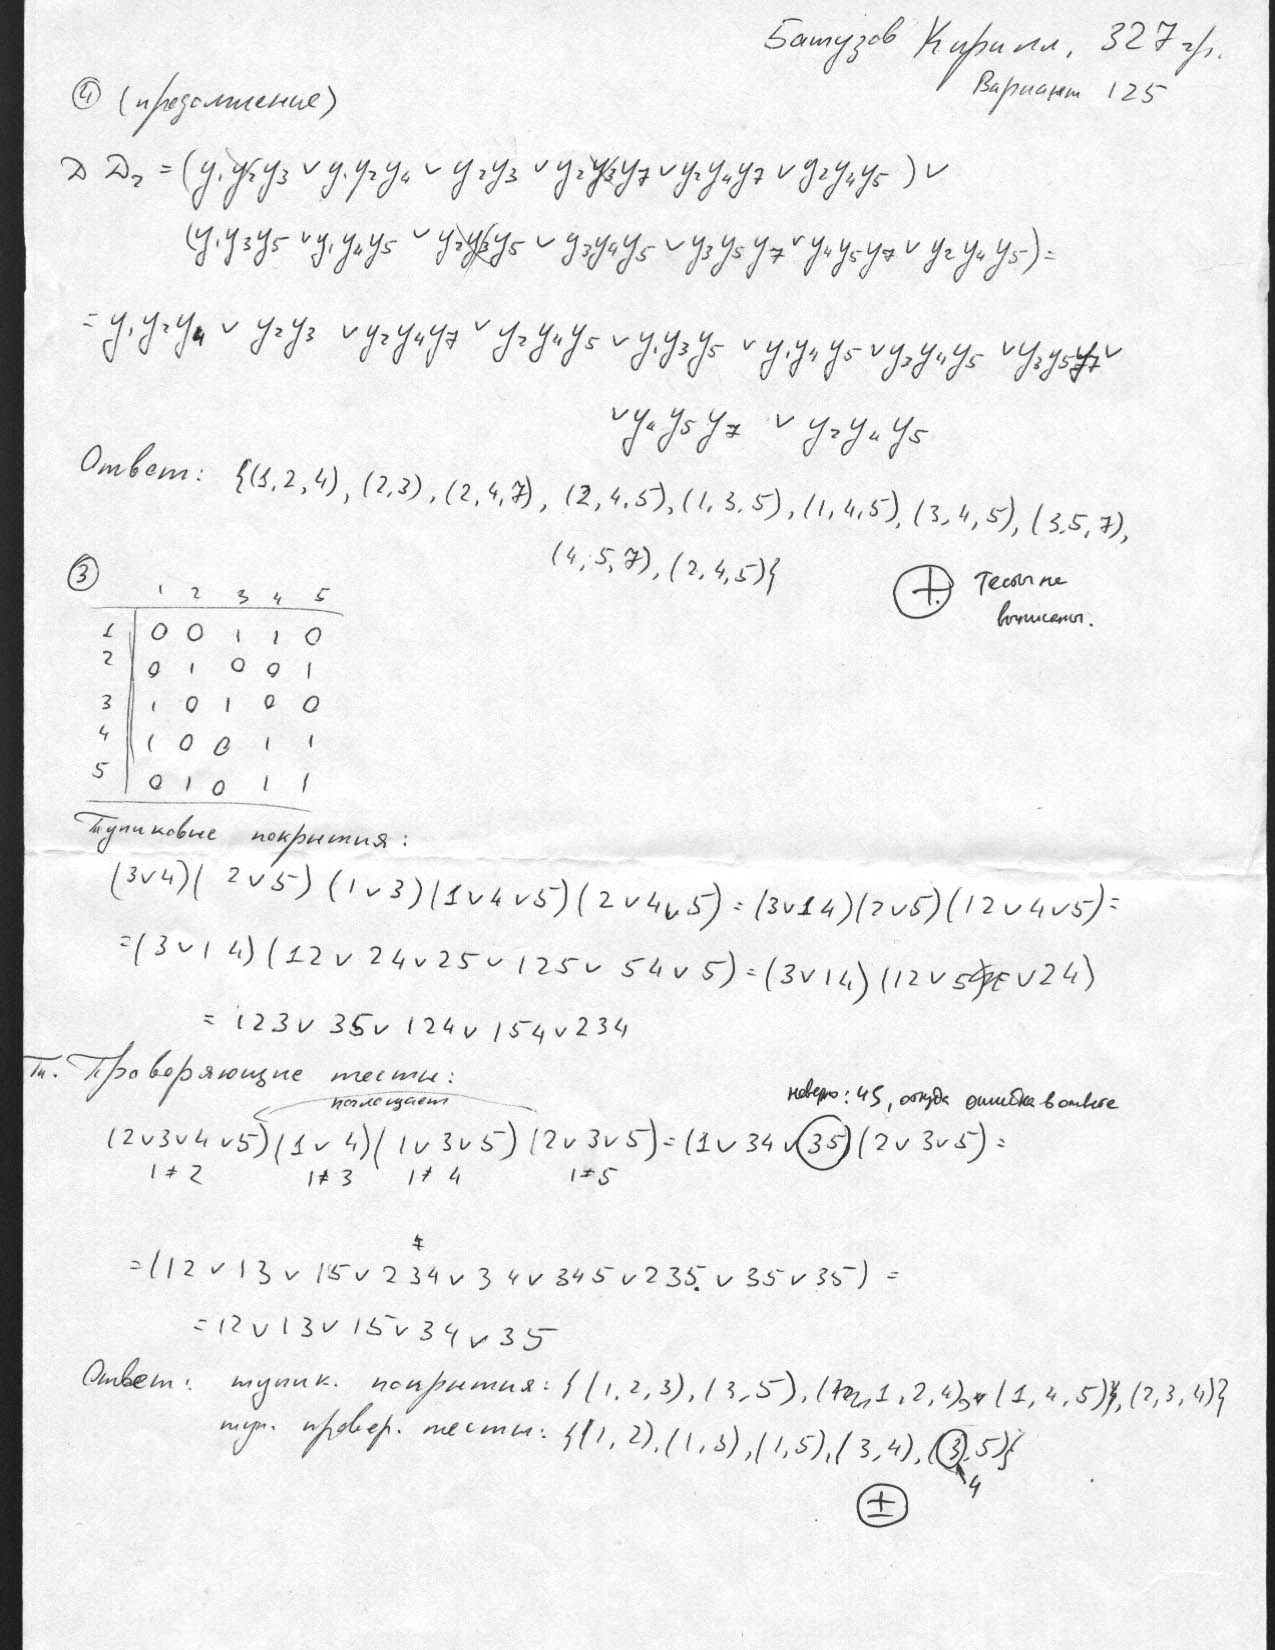 Батузов Кирилл, 327 гр.
Вариант 125
④ (продолжение)
D D₂ = (y₁y₂y₃ ∨ y₁y₂y₄ ∨ y₂y₃ ∨ y₂y₃y₇ ∨ y₂y₄y₇ ∨ y₂y₄y₅) ∨
(y₁y₃y₅ ∨ y₁y₄y₅ ∨ y₂y₃y₅ ∨ y₃y₄y₅ ∨ y₃y₅y₇ ∨ y₄y₅y₇ ∨ y₂y₄y₅) =
= y₁y₂y₄ ∨ y₂y₃ ∨ y₂y₄y₇ ∨ y₂y₄y₅ ∨ y₁y₃y₅ ∨ y₁y₄y₅ ∨ y₃y₄y₅ ∨ y₃y₅y₇ ∨
∨ y₄y₅y₇ ∨ y₂y₄y₅
Ответ: {(1,2,4), (2,3), (2,4,7), (2,4,5), (1,3,5), (1,4,5), (3,4,5), (3,5,7),
(4,5,7), (2,4,5)}
Тесты не
выписаны.
③
1 2 3 4 5
1 0 0 1 1 0
2 0 1 0 0 1
3 1 0 1 0 0
4 1 0 0 1 1
5 0 1 0 1 1
Тупиковые покрытия:
(3∨4)(2∨5)(1∨3)(1∨4∨5)(2∨4∨5) = (3∨14)(2∨5)(12∨4∨5) =
= (3∨14)(12∨24∨25∨125∨54∨5) = (3∨14)(12∨5∨24)
= 123∨35∨124∨154∨234
Т. Проверяющие тесты:
поглощает
неверно: 45, откуда ошибка в ответе
(2∨3∨4∨5)(1∨4)(1∨3∨5)(2∨3∨5) = (1∨34∨35)(2∨3∨5) =
1≠2 1≠3 1≠4 1≠5
= (12∨13∨15∨234∨34∨345∨235∨35∨35) =
= 12∨13∨15∨34∨35
Ответ: тупик. покрытия: {(1,2,3), (3,5), (1,2,4), (1,4,5), (2,3,4)}
туп. провер. тесты: {(1,2), (1,3), (1,5), (3,4), (3,5)}
4
±